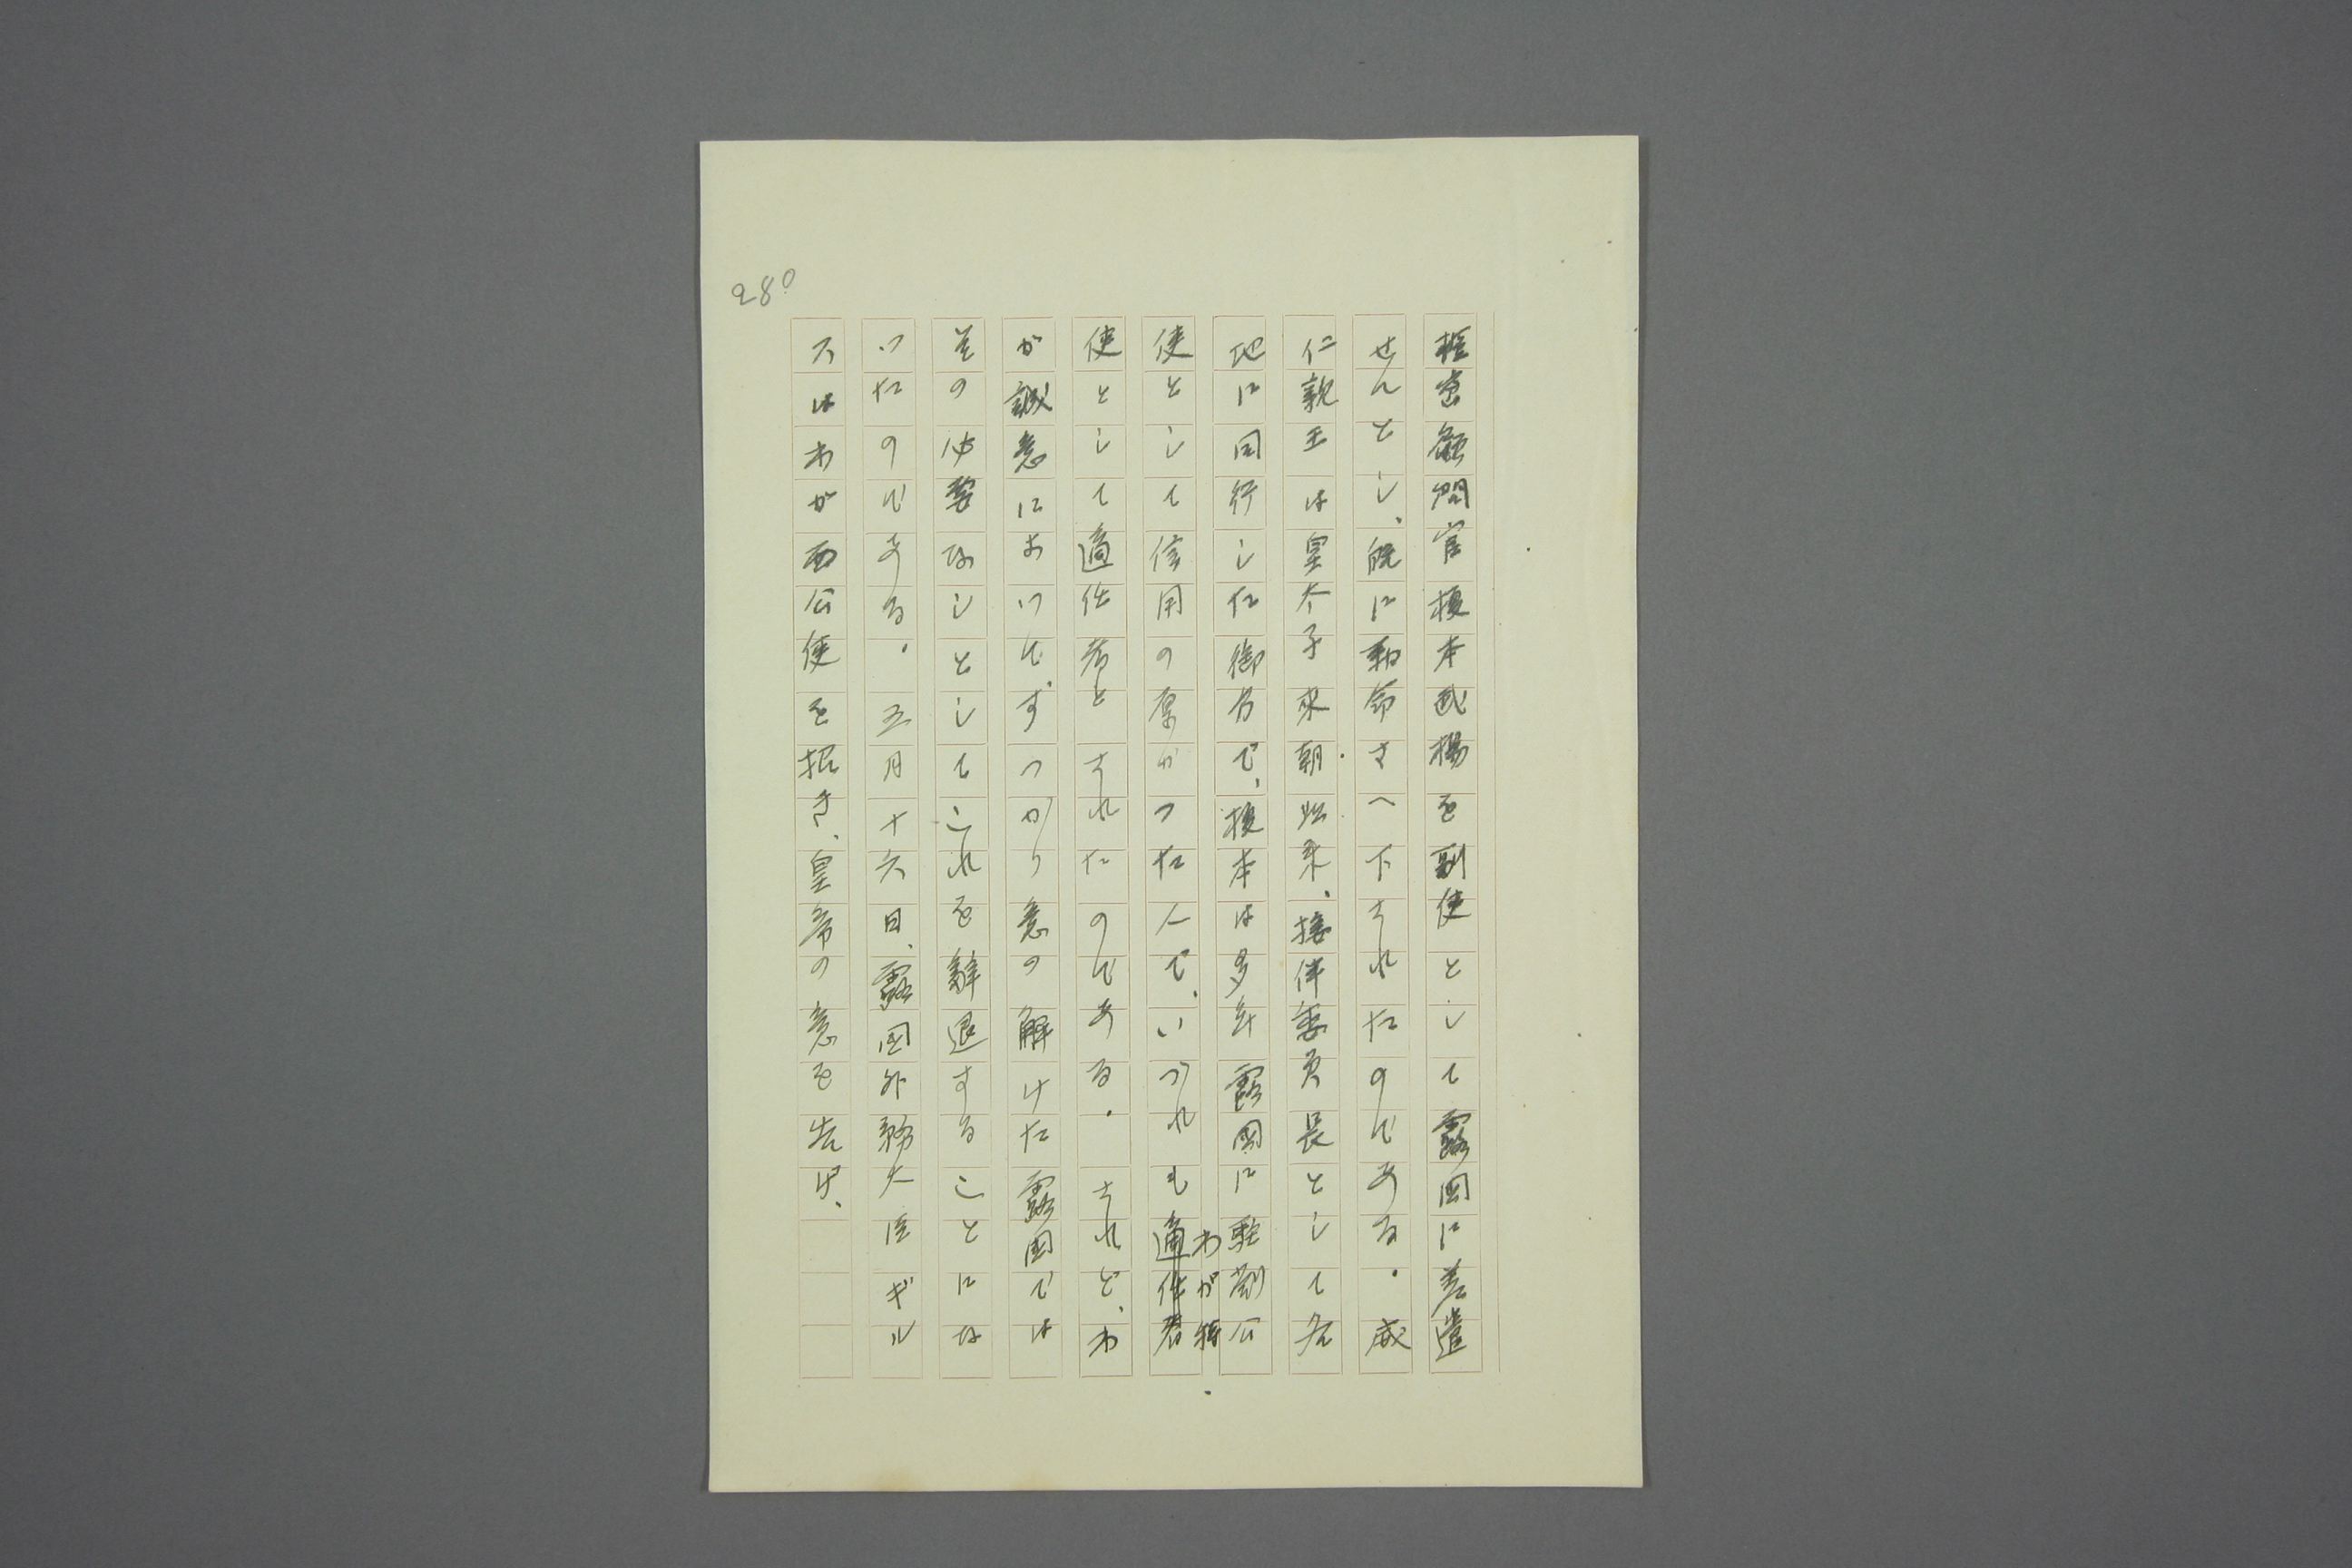 280
枢密顧問官榎本武揚を副使として露国に差遣
せんとし、既に勅命さへ下されたのである。威
仁親王は皇太子来朝以来、接伴委員長として各
地に同行した御方で、榎本は多年露国に駐劄公
使として信用の厚かつた人で、いづれもわが特
適任者
使として適任者とされたのである。されど、わ
が誠意においてずつかり意の解けた露国では
其の必要なしとしてこれを辞退することにな
つたのである。五月十六日、露国外務大臣ギル
スはわが西公使を招き、皇帝の意を告げ、